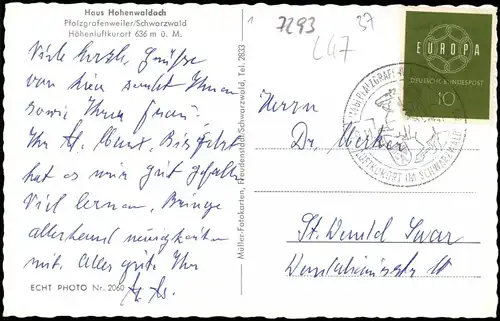 Haus Hohenwaldach
Pfalzgrafenweiler/Schwarzwald
Höhenluftkurort 636 m ü. M.
Viele herzl. Grüße
von hier sendet Ihnen
sowie Ihrer Frau,
Ihr
hat es mir gut gefallen
Viel lernen, Bringe
allerhand neuigkeiten
mit. Alles gute Ihr
ECHT PHOTO Nr. 2060
Müller-Fotokarten, Freudenstadt/Schwarzwald, Tel. 2833
7293
37
L47
EUROPA
DEUTSCHE BUNDESPOST
10
LUFTKURORT IM SCHWARZWALD
Herrn
Dr. Merker
St. Wendel Saar